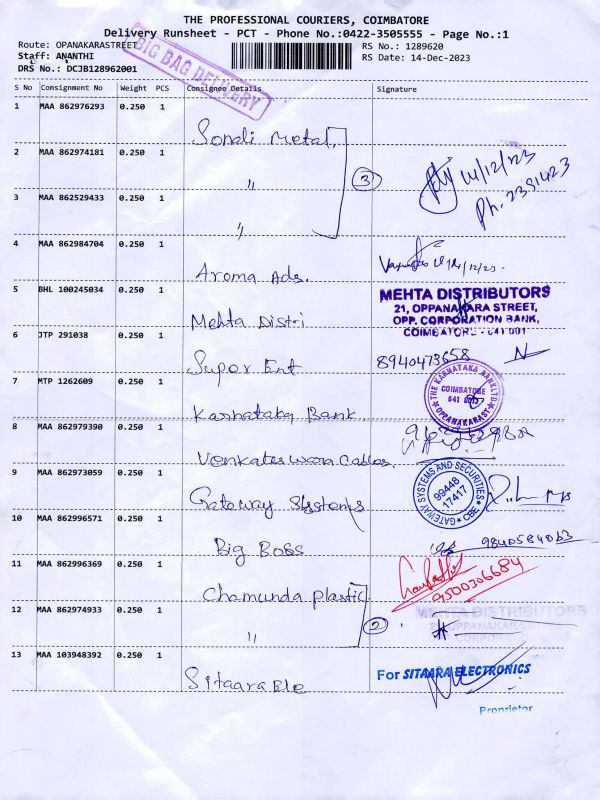 THE PROFESSIONAL COURIERS, COIMBATORE
Delivery Runsheet - PCT - Phone No.:0422-3505555 - Page No.:1
Route: OPANAKARASTREET
RS No.: 1289620
Staff: ANANTHI
RS Date: 14-Dec-2023
DRS No.: DCJB128962001
BIG BAG DELIVERY
S No Consignment No Weight PCS Consignee Details Signature
1 MAA 862976293 0.250 1 Sonali Metal
2 MAA 862974181 0.250 1 "
3 MAA 862529433 0.250 1 "
3
14/12/23
Ph. 2351423
4 MAA 862984704 0.250 1 Aroma Ads.
5 BHL 100245034 0.250 1 Mehta Distri
MEHTA DISTRIBUTORS
21, OPPANAKARA STREET,
OPP. CORPORATION BANK,
COIMBATORE - 641 001
6 JTP 291038 0.250 1 Super Ent
8940473658
7 MTP 1262609 0.250 1 Karnataka Bank
THE KARNATAKA BANK LTD.
COIMBATORE
641 001
OPPANAKARAST
8 MAA 862979390 0.250 1 Venkateswara Cables
9 MAA 862973059 0.250 1 Gateway Systems
GATEWAY SYSTEMS AND SECURITIES
99448
17417
CBE
10 MAA 862996571 0.250 1 Big Boss
11 MAA 862996369 0.250 1 Chamunda plastic
9500306684
12 MAA 862974933 0.250 1 "
2
MEHTA DISTRIBUTORS
OPPANAKARA
13 MAA 103948392 0.250 1 Sitaara Ele
For SITAARA ELECTRONICS
Proprietor